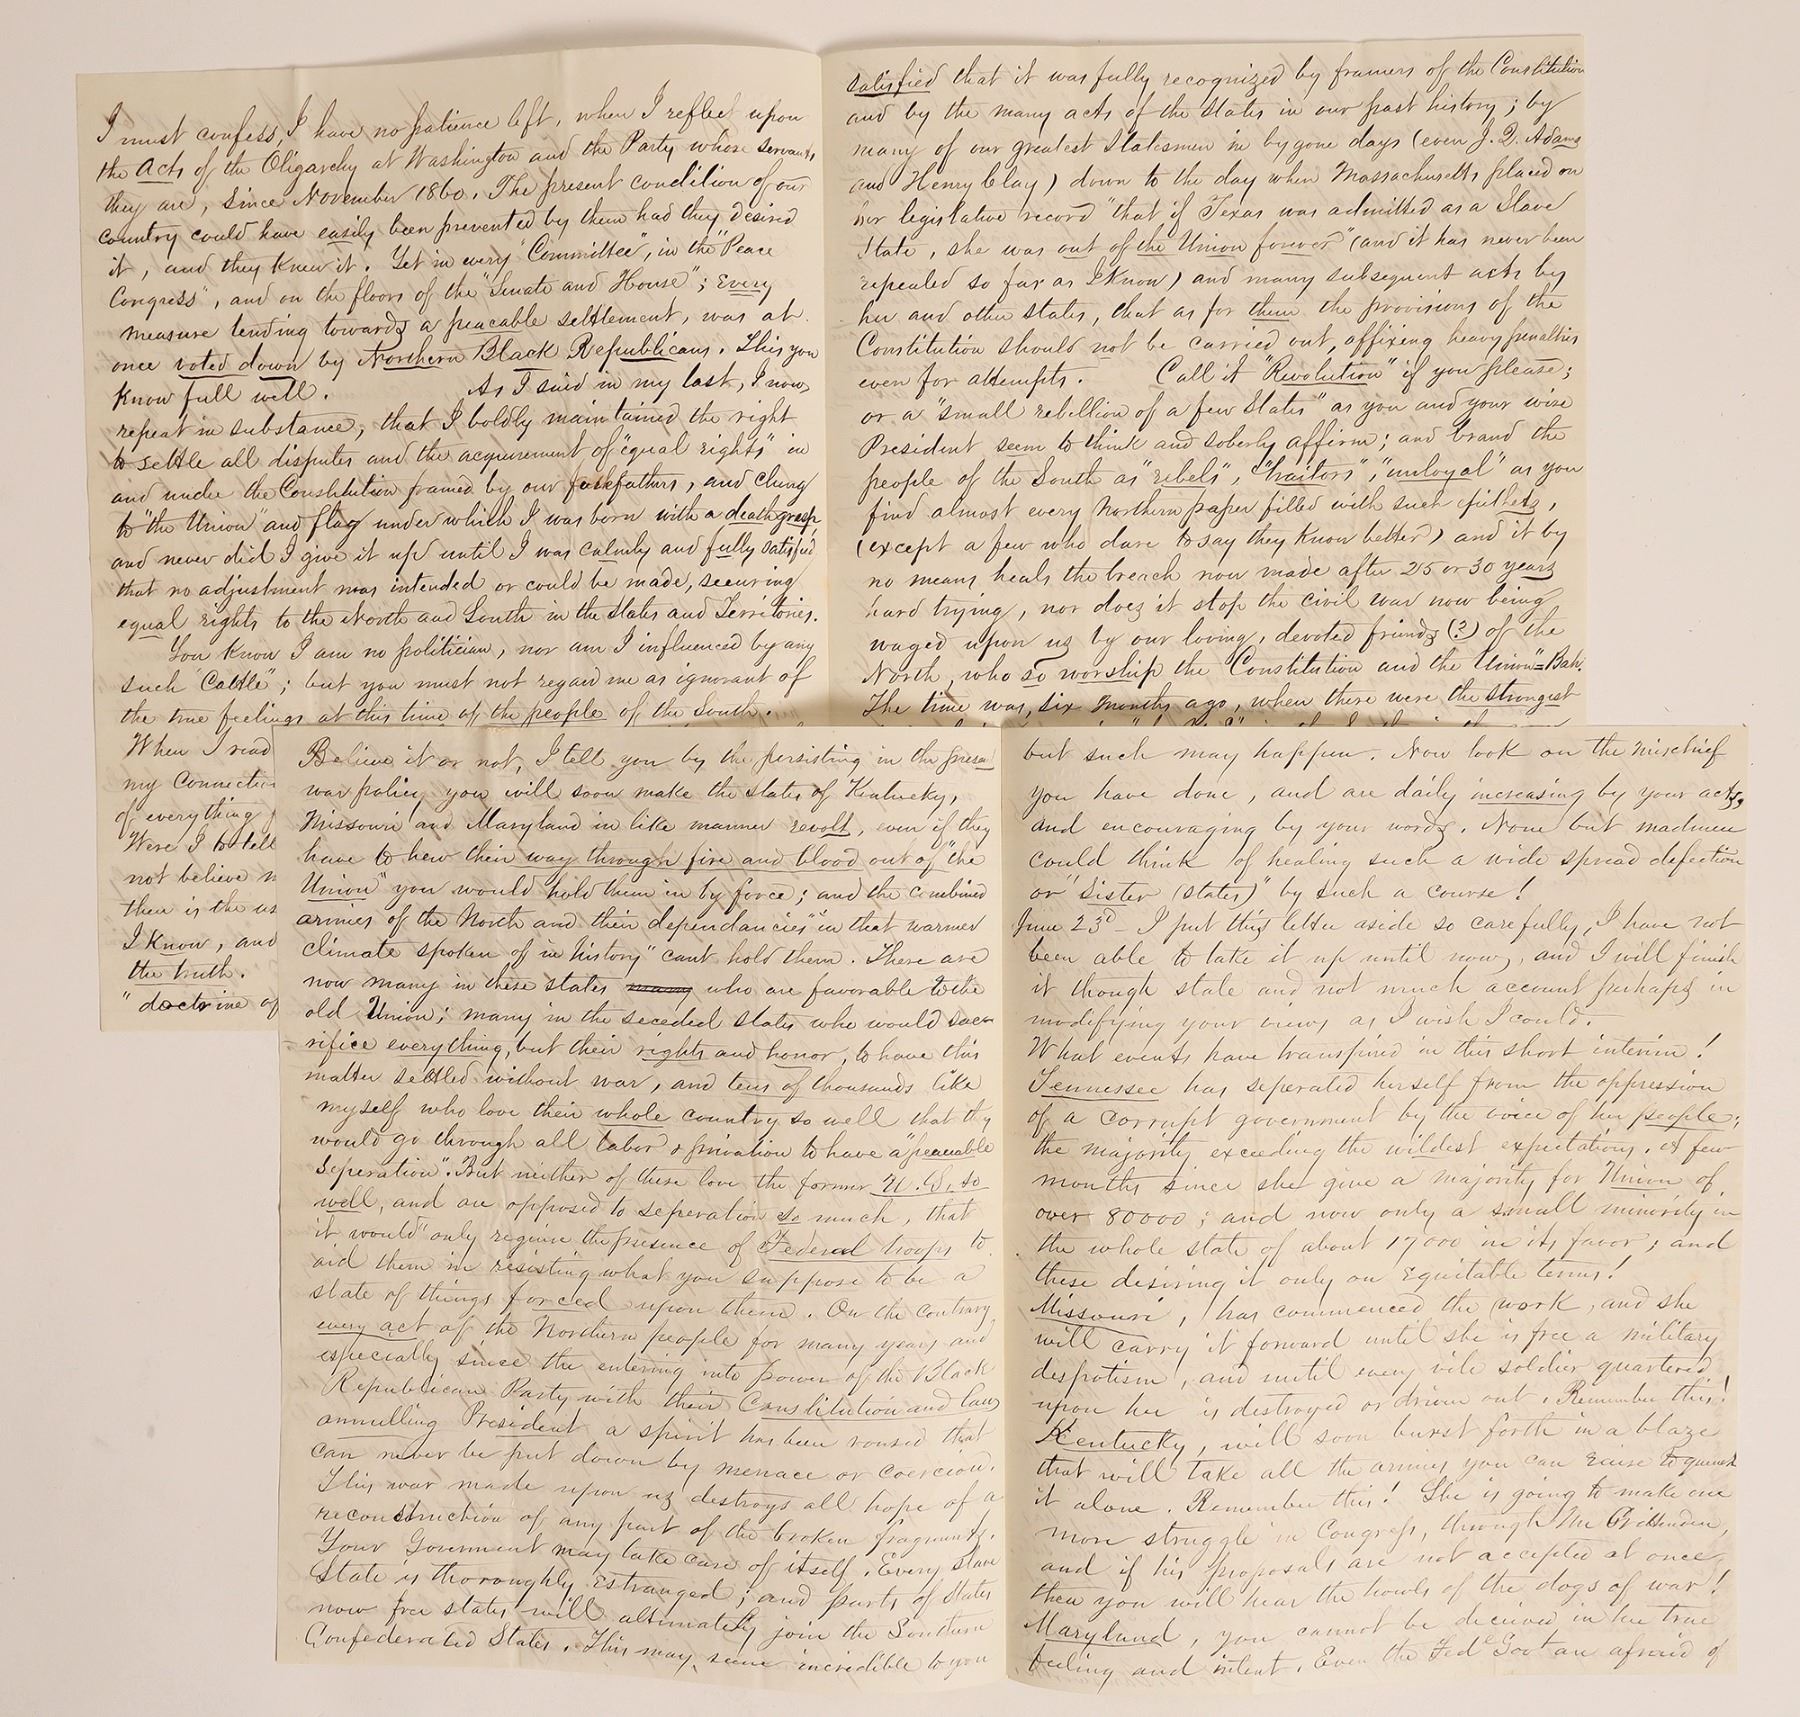 I must confess, I have no patience left, when I reflect upon
the Acts of the Oligarchy at Washington and the Party whose servants
they are, since November 1860. The present condition of our
country could have easily been prevented by them had they desired
it, and they knew it. Yet in every "Committee", in the "Peace
Congress", and on the floors of the "Senate and House"; Every
measure tending towards a peacable settlement, was at
once voted down by Northern Black Republicans. This you
know full well. As I said in my last, I now
repeat in substance, that I boldly maintained the right
to settle all disputes and the acquirement of "equal rights" in
and under the Constitution framed by our forefathers, and clung
to "the Union" and flag under which I was born with a death grasp
and never did I give it up until I was calmly and fully satisfied
that no adjustment was intended or could be made, securing
equal rights to the North and South in the States and Territories.
You know I am no politician, nor am I influenced by any
such "Cattle"; but you must not regard me as ignorant of
the true feelings at this time of the people of the South.
When I read
my connection
of everything
Were I to tell
not believe
then is the
I know, and
the truth.
"doctrine of
satisfied that it was fully recognized by framers of the Constitution
and by the many acts of the States in our past history; by
many of our greatest Statesmen in by gone days (even J. Q. Adams
and Henry Clay) down to the day when Massachusetts placed on
her legislative record "that if Texas was admitted as a Slave
State, she was out of the Union forever" (and it has never been
repealed so far as I know) and many subsequent acts by
her and other states, that as for them the provisions of the
Constitution should not be carried out, affixing heavy penalties
even for attempts. Call it "Revolution" if you please;
or a "small rebellion of a few States" as you and your wise
President seem to think and soberly affirm; and brand the
people of the South as "rebels", "traitors", "unloyal" as you
find almost every Northern paper filled with such epithets,
(except a few who dare to say they know better) and it by
no means heals the breach now made after 25 or 30 years
hard trying, nor does it stop the civil war now being
waged upon us by our loving, devoted friends (?) of the
North, who so worship the "Constitution and the Union" = Bah.
The time was, six months ago, when there were the strongest
Believe it or not, I tell you by the persisting in the present
war policy you will soon make the states of Kentucky,
Missouri and Maryland in like manner revolt, even if they
have to hew their way through fire and blood out of "the
Union" you would hold them in by force; and the combined
armies of the North and their dependancies "in that warmer
climate spoken of in history" cant hold them. There are
now many in these states many who are favorable to the
old Union; many in the seceded states who would sac-
rifice everything, but their rights and honor, to have this
matter settled without war, and tens of thousands like
myself who love their whole country so well that they
would go through all labor & privation to have a "peaceable
Seperation". But neither of these love the former U. S. so
well, and are opposed to seperation so much, that
it would "only require the presence of Federal troops to
aid them in resisting what you suppose to be a
state of things forced upon them. On the contrary
every act of the Northern people for many years and
especially since the entering into power of the Black
Republican Party with their Constitution and law
annulling President a spirit has been roused that
can never be put down by menace or coercion.
This war made upon us destroys all hope of a
reconstruction of any part of the broken fragments.
Your Goverment may take care of itself. Every slave
State is thoroughly estranged; and parts of States
now free states will altimately join the Southern
Confederated States. This may seem incredible to you
but such may happen. Now look on the mischief
you have done, and are daily increasing by your acts,
and encouraging by your words. None but madmen
could think of healing such a wide spread defection
or "Sister (States)" by such a course!
June 23d - I put this letter aside so carefully, I have not
been able to take it up until now, and I will finish
it though stale and not much account perhaps in
modifying your views as I wish I could.
What events have transpired in this short interim!
Tennessee has seperated herself from the oppression
of a corrupt government by the voice of her people;
the majority exceeding the wildest expectations. A few
months since she give a majority for Union of
over 80000; and now only a small minority in
the whole state of about 17000 in its favor; and
these desiring it only on Equitable terms!
Missouri, has commenced the work, and she
will carry it forward until she is free a military
despotism, and until every vile soldier quartered
upon her is destroyed or driven out. Remember this!
Kentucky, will soon burst forth in a blaze
that will take all the armies you can raise to quench
it alone. Remember this! She is going to make one
more struggle in Congress, through Mr Crittenden,
and if his proposals are not accepted at once
then you will hear the howls of the dogs of war!
Maryland, you cannot be deceived in her true
feeling and intent. Even the Fedl Govt are afraid of